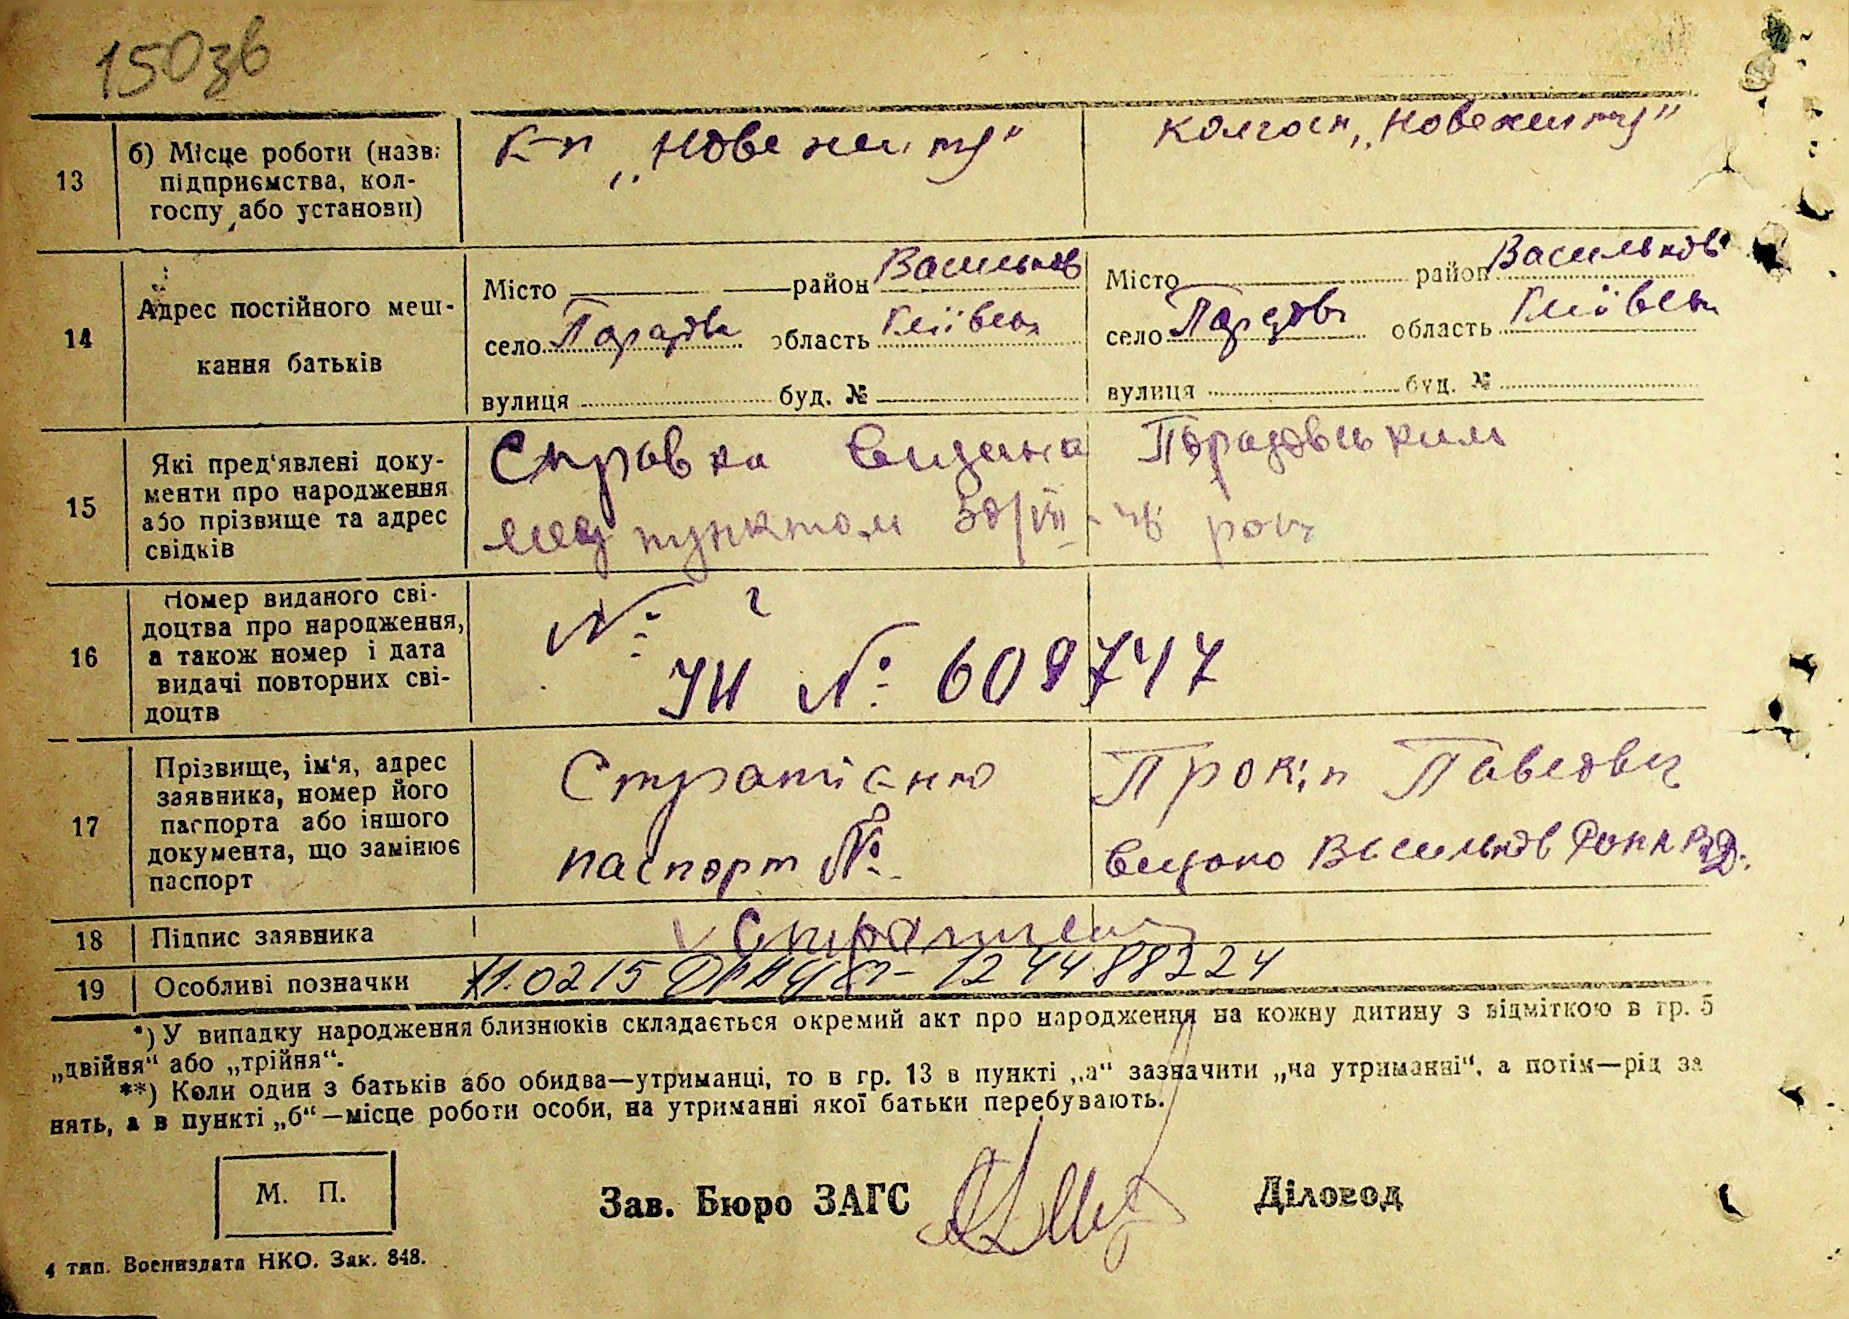 150зв
13 б) Місце роботи (назва підприємства, колгоспу або установи)
К-п „Нове життя"
колгосп „Нове життя"
14 Адрес постійного мешкання батьків
Місто район Васильків
село Порадовка область Київська
вулиця буд. №
Місто район Васильків
село область Київська
вулиця буд. №
15 Які пред'явлені документи про народження або прізвище та адрес свідків
Справка видана Порадовським
мед пунктом 30/VII-46 року
16 Номер виданого свідоцтва про народження, а також номер і дата видачі повторних свідоцтв
№:
УН №: 609747
17 Прізвище, ім'я, адрес заявника, номер його паспорта або іншого документа, що замінює паспорт
Прокіп Павлович
паспорт №
видано Васильков
18 Підпис заявника
19 Особливі позначки
*) У випадку народження близнюків складається окремий акт про народження на кожну дитину з відміткою в гр. 5
„двійня" або „трійня".
**) Коли один з батьків або обидва—утриманці, то в гр. 13 в пункті „а" зазначити „на утриманні", а потім—рід за
нять, а в пункті „б"—місце роботи особи, на утриманні якої батьки перебувають.
М. П.
Зав. Бюро ЗАГС
Діловод
4 тип. Воениздата НКО. Зак. 848.